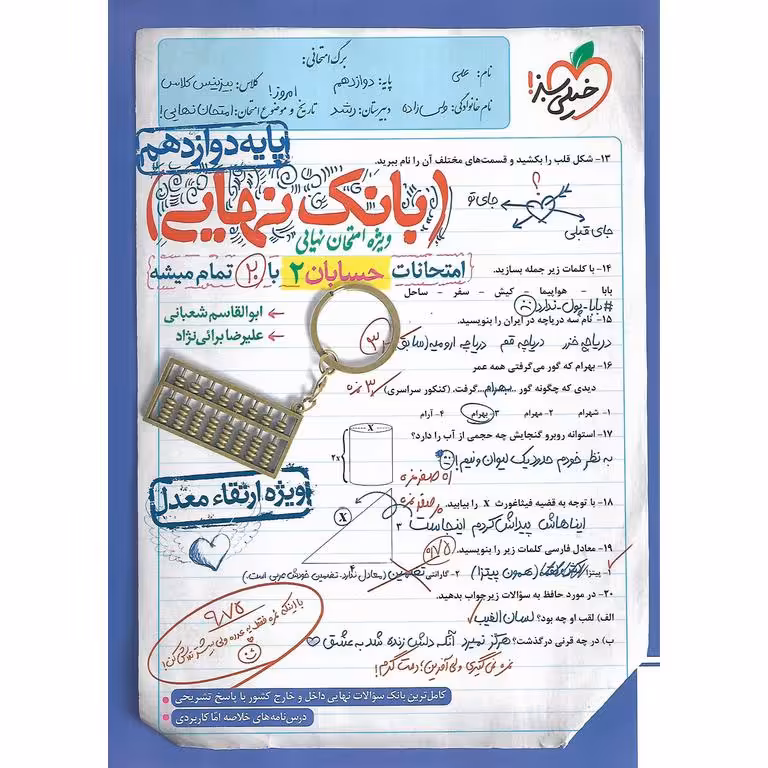 برگ امتحانی:
نام: علی
پایه: دوازدهم
کلاس: بیزینس کلاس
نام خانوادگی: ولی‌زاده
دبیرستان: رشد
تاریخ و موضوع امتحان: امروز! امتحان نهایی!
خیلی سبز!
پایه دوازدهم
(بانک نهایی)
ویژه امتحان نهایی
امتحانات حسابان ۲ با ۲۰ تمام میشه
ابوالقاسم شعبانی
علیرضا برائی‌نژاد
۱۳- شکل قلب را بکشید و قسمت‌های مختلف آن را نام ببرید.
؟
جای تو
جای قبلی
۱۴- با کلمات زیر جمله بسازید.
بابا - هواپیما - کیش - سفر - ساحل
#بابا-پول-ندارد
۱۵- نام سه دریاچه در ایران را بنویسید.
دریاچه خزر دریاچه قم دریاچه ارومیه (سابق)
۳
۱۶- بهرام که گور می‌گرفتی همه عمر
دیدی که چگونه گور ..بهرام.. گرفت. (کنکور سراسری)
۳ نمره
۱- شهرام ۲- مهرام ۳- بهرام ۴- آرام
۱۷- استوانه روبرو گنجایش چه حجمی از آب را دارد؟
X
2X
به نظر خودم حدود یک لیوان و نیم!
صفر نمره
۱۸- با توجه به قضیه فیثاغورث X را بیابید.
صفر نمره
ایناهاش پیداش کردم اینجاست
X
۳
۴
۱۹- معادل فارسی کلمات زیر را بنویسید.
۰/۷۵
۱- پیتزا (همون پیتزا) ۲- گارانتی تضمین (معادل ندارد. تضمین خودش عربی است.)
۲۰- در مورد حافظ به سؤالات زیر جواب بدهید.
الف) لقب او چه بود؟ لسان الغیب
ب) در چه قرنی درگذشت؟ هرگز نمیرد آنکه دلش زنده شد به عشق
نمره نمی‌گیری ولی آفرین! دمت گرم!
۹/۷۵
با اینکه نمره فقط یه عدده ولی بیشتر تلاش کن!
ویژه ارتقاء معدل
کامل‌ترین بانک سؤالات نهایی داخل و خارج کشور با پاسخ تشریحی
درس‌نامه‌های خلاصه امّا کاربردی